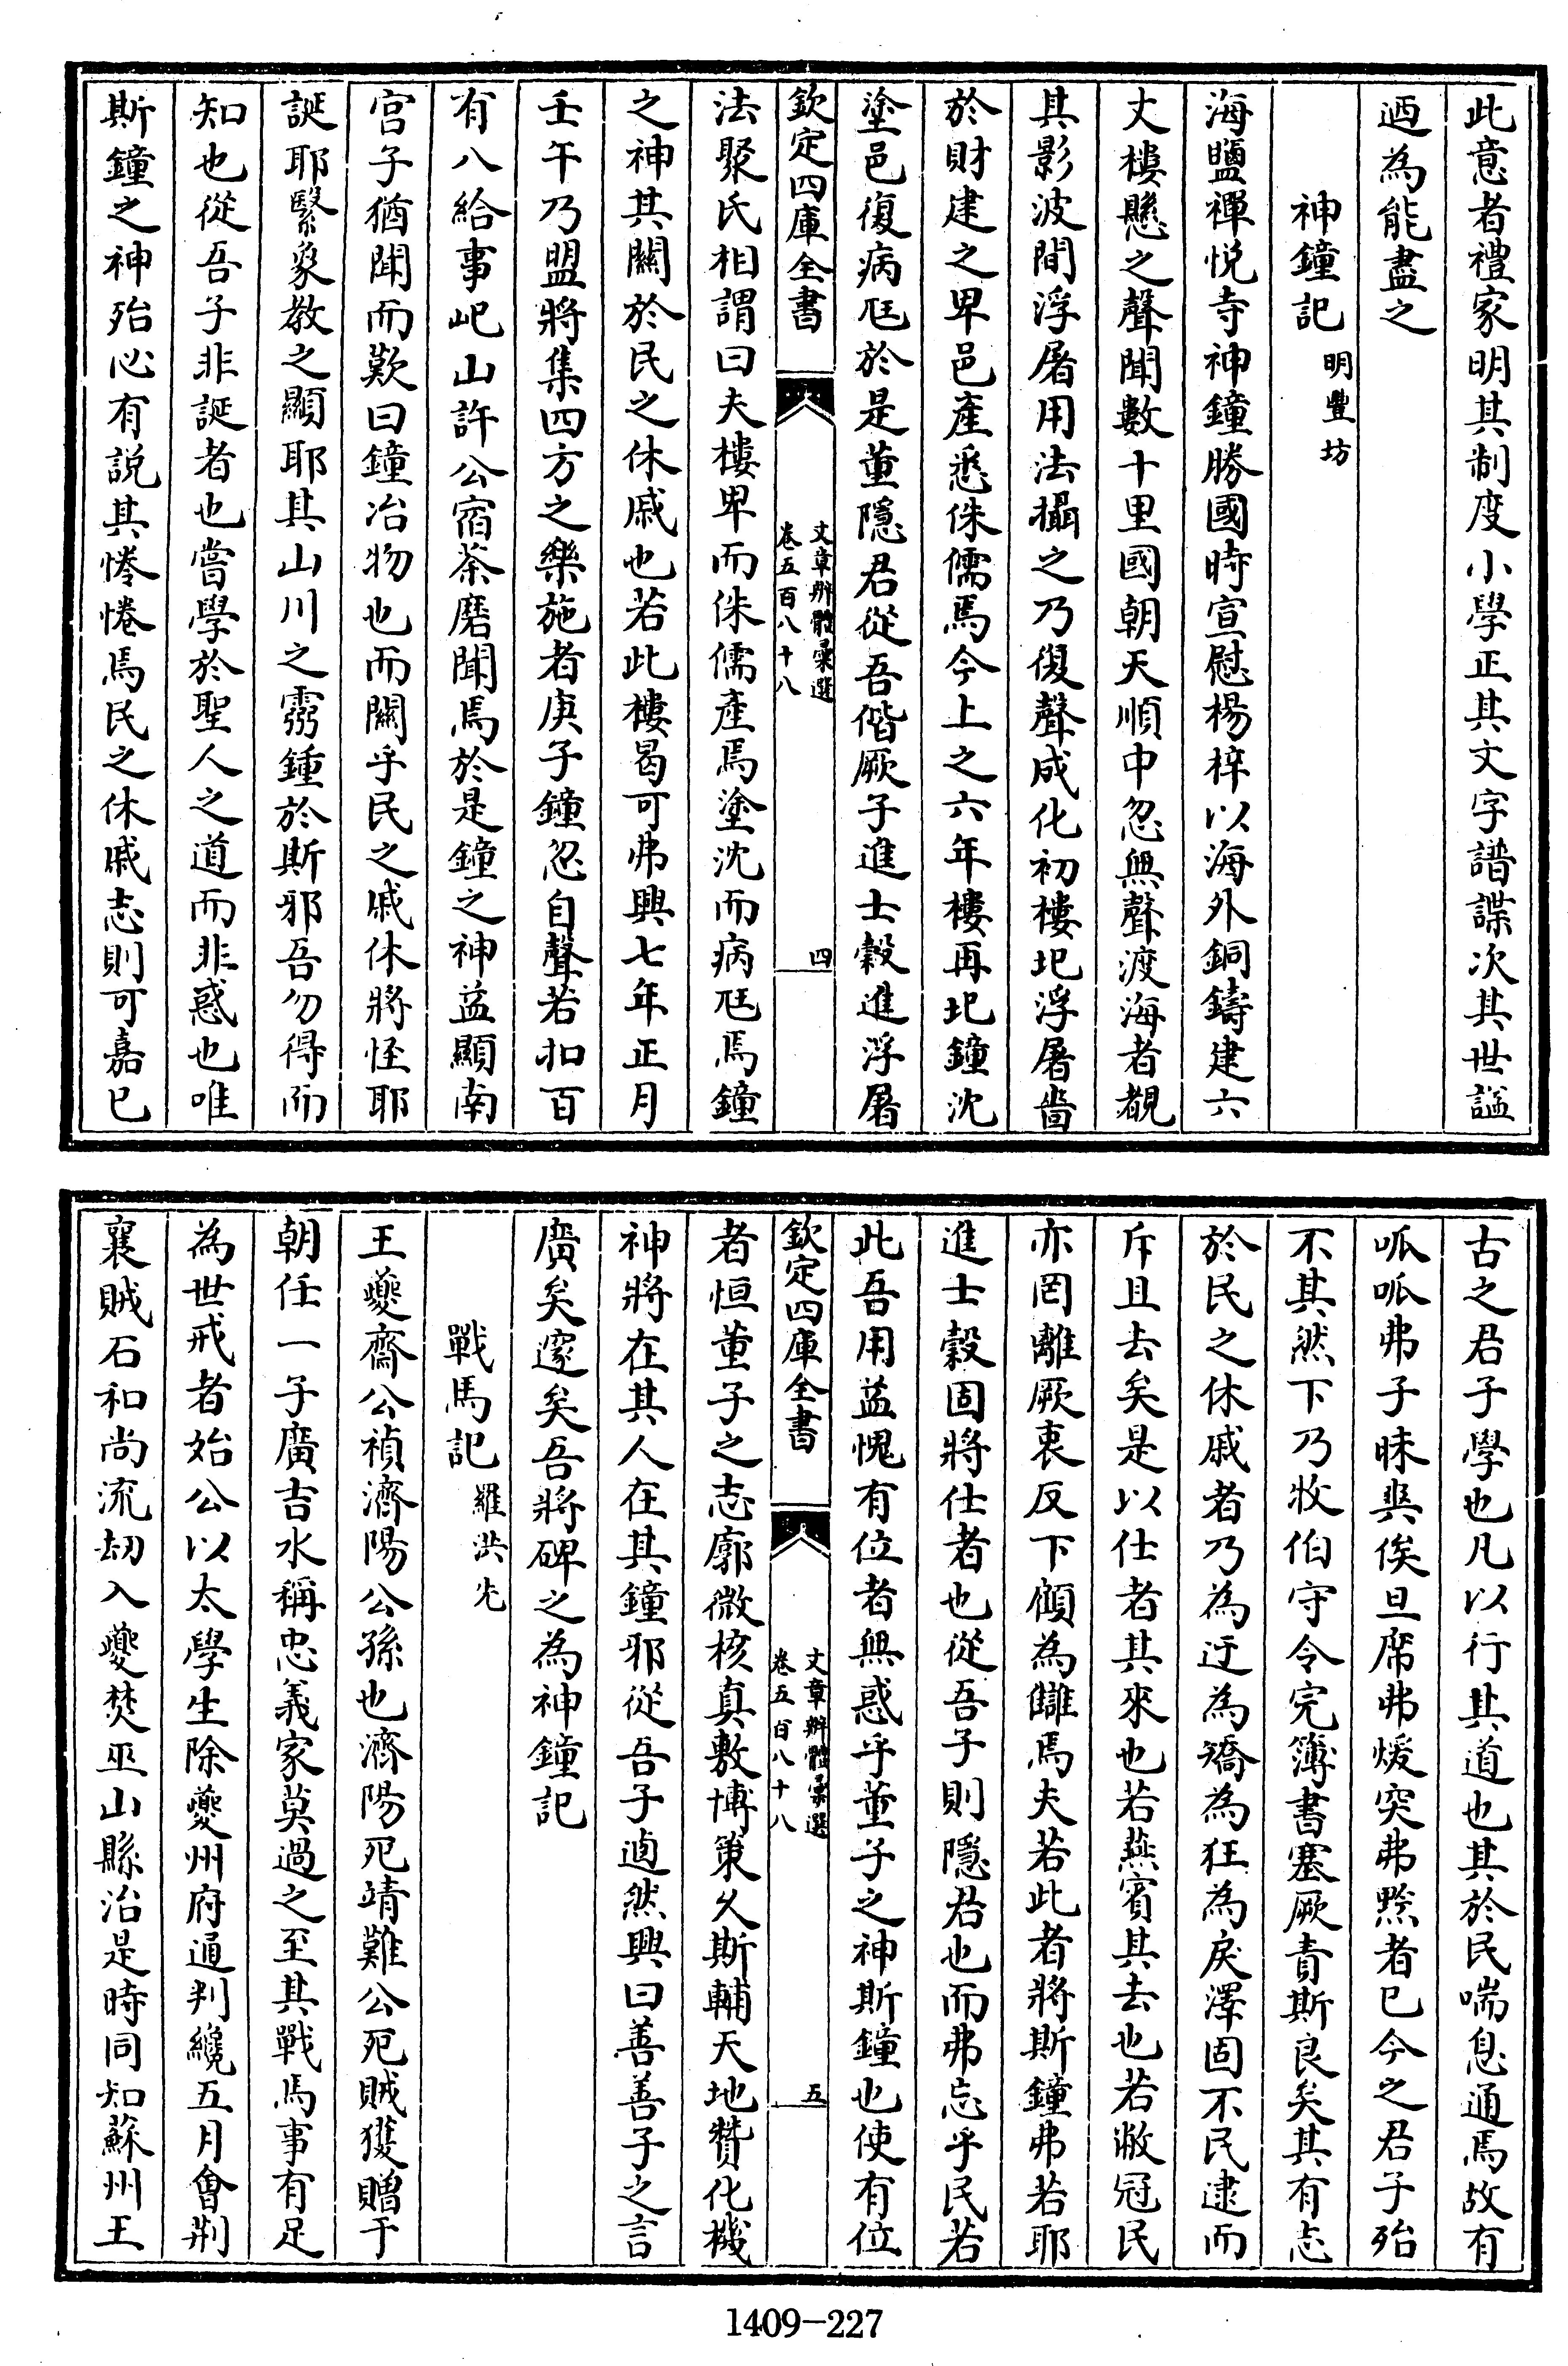 此意者禮家明其制度小學正其文字譜諜次其世諡
迺為能盡之
神鐘記明豐坊
海鹽禪悅寺神鐘勝國時宣慰楊梓以海外銅鑄建六
丈樓懸之聲聞數十里國朝天順中忽無聲渡海者覩
其影波間浮屠用法攝之乃復聲成化初樓圯浮屠嗇
於財建之卑邑產悉侏儒焉今上之六年樓再圯鐘沈
塗邑復病尫於是董隱君從吾偕厥子進士穀進浮屠
欽定四庫全書
文章辨體彙選
卷五百八十八
四
法聚氏相謂曰夫樓卑而侏儒產焉塗沈而病尫焉鐘
之神其關於民之休戚也若此樓曷可弗興七年正月
壬午乃盟將集四方之樂施者庚子鐘忽自聲若扣百
有八給事屺山許公宿茶磨聞焉於是鐘之神益顯南
宮子猶聞而歎曰鐘冶物也而關乎民之戚休將怪耶
誕耶繄象教之顯耶其山川之靈鍾於斯邪吾勿得而
知也從吾子非誕者也嘗學於聖人之道而非惑也唯
斯鐘之神殆必有説其惓惓焉民之休戚志則可嘉已
古之君子學也凡以行其道也其於民喘息通焉故有
呱呱弗子昧爽俟旦席弗煖突弗黔者已今之君子殆
不其然下乃牧伯守令完簿書塞厥責斯良矣其有志
於民之休戚者乃為迂為矯為狂為戾澤固不民逮而
斥且去矣是以仕者其來也若燕賓其去也若敝冠民
亦罔離厥衷反下傾為讎焉夫若此者將斯鐘弗若耶
進士穀固將仕者也從吾子則隱君也而弗忘乎民若
此吾用益愧有位者無惑乎董子之神斯鐘也使有位
欽定四庫全書
文章辨體彙選
卷五百八十八
五
者恒董子之志廓微核真敷博策久斯輔天地贊化機
神將在其人在其鐘邪從吾子逌然興曰善善子之言
廣矣邃矣吾將碑之為神鐘記
戰馬記羅洪先
王夔齋公禎濟陽公孫也濟陽死靖難公死賊獲贈于
朝任一子廣吉水稱忠義家莫過之至其戰馬事有足
為世戒者始公以太學生除夔州府通判纔五月會荆
襄賊石和尚流刼入夔焚巫山縣治是時同知蘇州王
1409-227